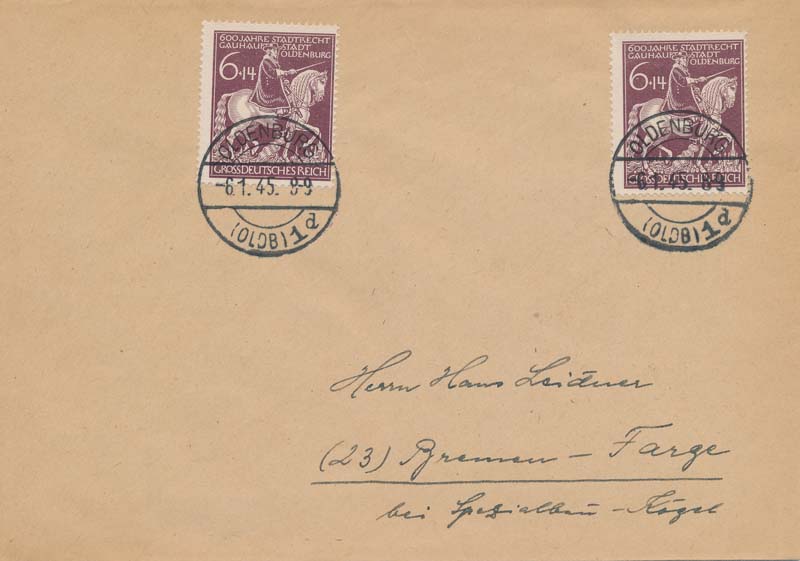 600 JAHRE STADTRECHT
GAUHAUPTSTADT
OLDENBURG
6+14
GROSSDEUTSCHES REICH
OLDENBURG
-6.1.45. 8-9
(OLDB) 1d
600 JAHRE STADTRECHT
GAUHAUPTSTADT
OLDENBURG
6+14
GROSSDEUTSCHES REICH
OLDENBURG
-6.1.45. 8-9
(OLDB) 1d
Herrn Hans Leidner
(23) Bremen - Farge
bei Spezialbau - Kögel